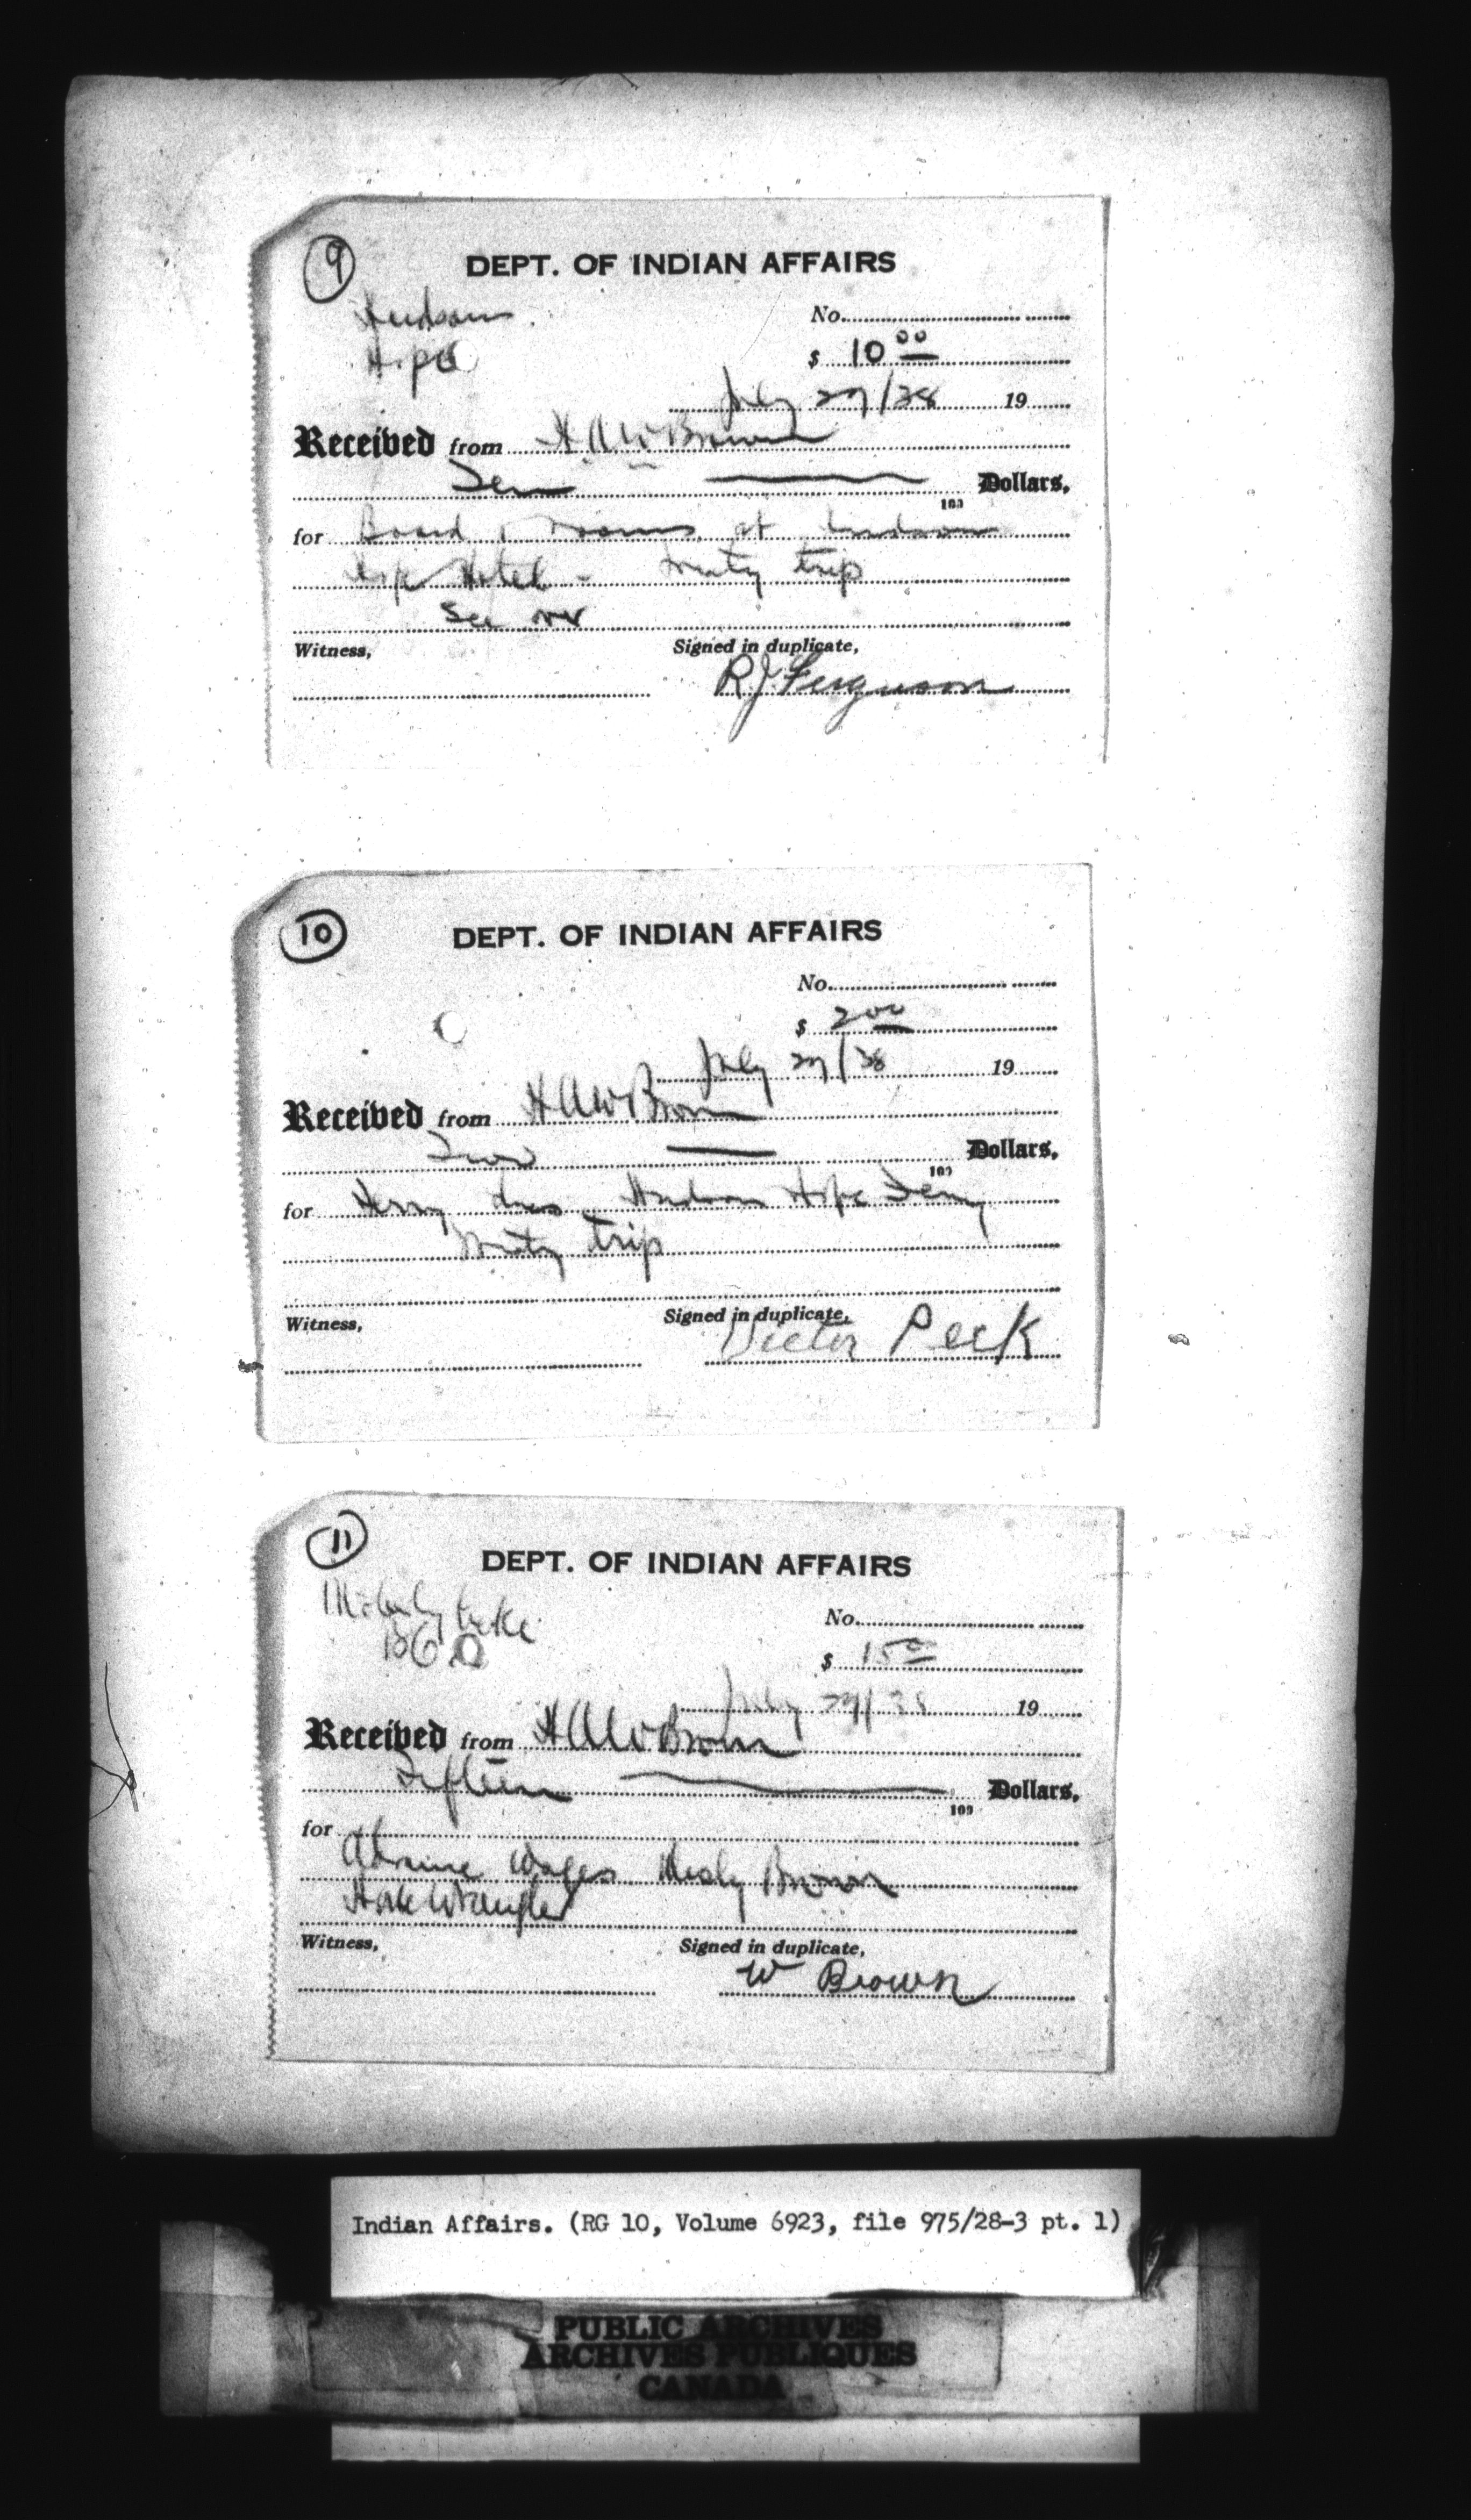 9
DEPT. OF INDIAN AFFAIRS
Hudson
Hope
No.
$ 10 00
July 27/38 19
Received from H A W Brown
Ten Dollars,
100
for Board & rooms at Hudson
Hope Hotel - treaty trip
See over
Witness,
Signed in duplicate,
R J Ferguson
10
DEPT. OF INDIAN AFFAIRS
No.
$ 2 00
July 27/38 19
Received from H A W Brown
Two Dollars,
100
for Ferry dues Hudson Hope Ferry
treaty trip
Witness,
Signed in duplicate,
Victor Peck
11
DEPT. OF INDIAN AFFAIRS
Moberly Lake
No.
$ 15 00
July 29/38 19
Received from H A W Brown
Fifteen Dollars,
100
for
Advance Wages Wesley Brown
Horse Wrangler
Witness,
Signed in duplicate,
W Brown
Indian Affairs. (RG 10, Volume 6923, file 975/28-3 pt. 1)
PUBLIC ARCHIVES
ARCHIVES PUBLIQUES
CANADA